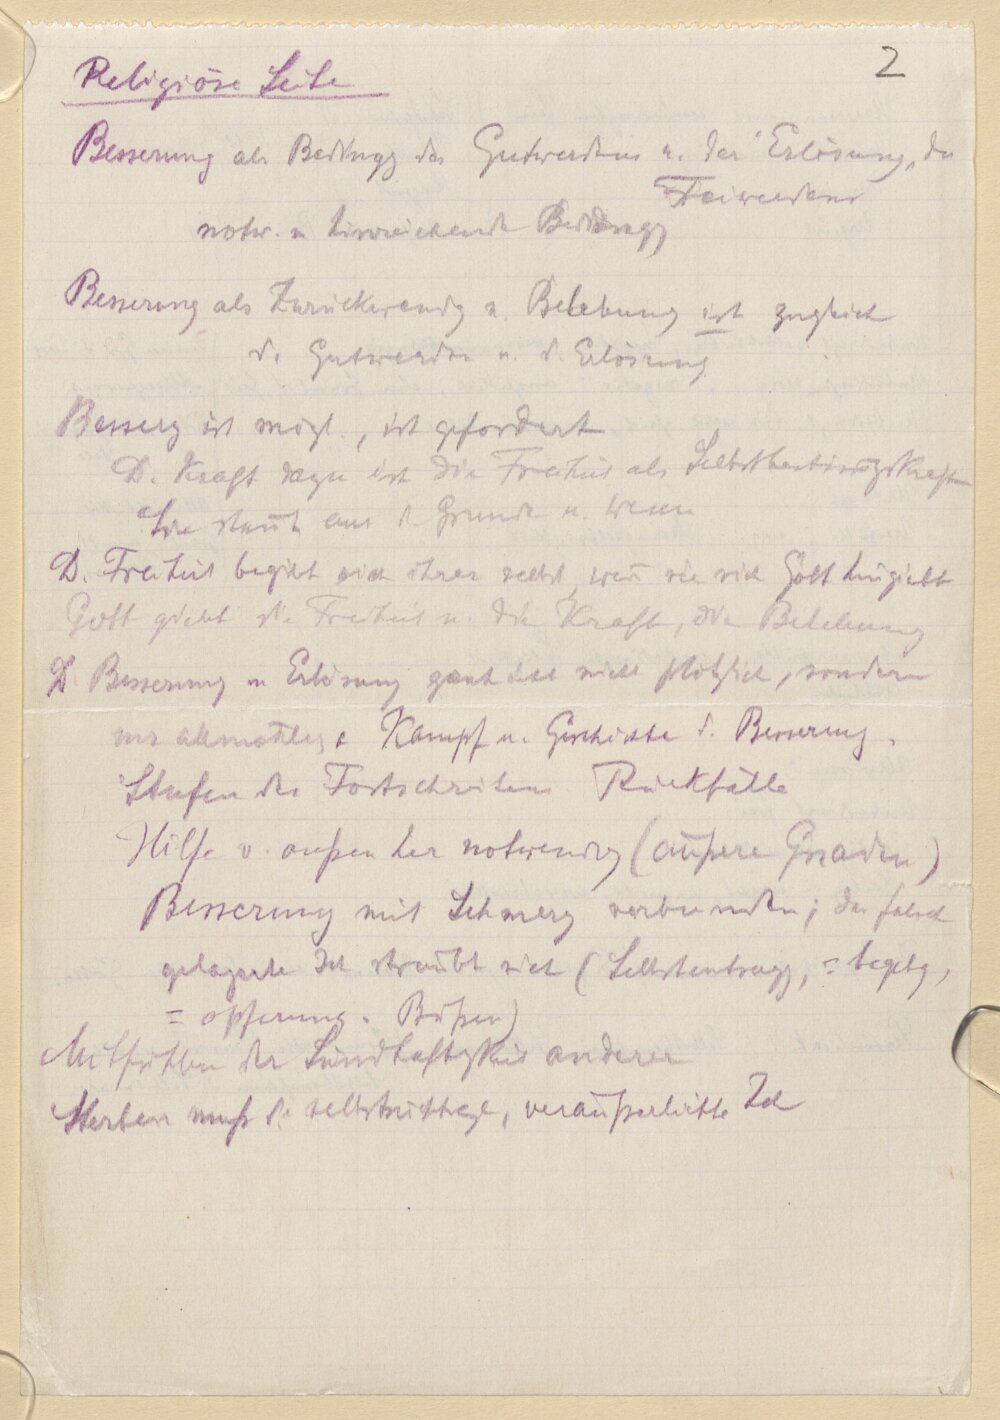 2
Religiöse Seite
Besserung als Bedingg des Gutwerdens u. der Erlösung, des
Freiwerdens
notw. u hinreichende Bedingg
Besserung als Zurückwendg u. Belebung ist zugleich
d. Gutwerden u. d. Erlösung
Besserg ist mögl., ist gefordert
D. Kraft dazu ist die Freiheit als Selbstbestimmgskraft
Sie stam̄t aus d. Grunde u. Wesen
D. Freiheit begibt sich ihrer selbst, wen̄ sie sich Gott hingiebt
Gott giebt die Freiheit u. die Kraft, die Belebung
D. Besserung u Erlösung nicht plötzlich, sondern
nur allmählig Kampf u. Geschichte d. Besserung.
Stufen des Fortschreitens Rückfälle
Hilfe v. außen her notwendig (äußere Gnaden)
Besserung mit Schmerz verbunden; das falsch
gelagerte Ich sträubt sich (Selbstentsagg, = begebg,
= opferung. Büßen)
Mitfühlen der Sündhaftigkeit anderer
Sterben muß d. selbstsüchtige, veräußerlichte Ich